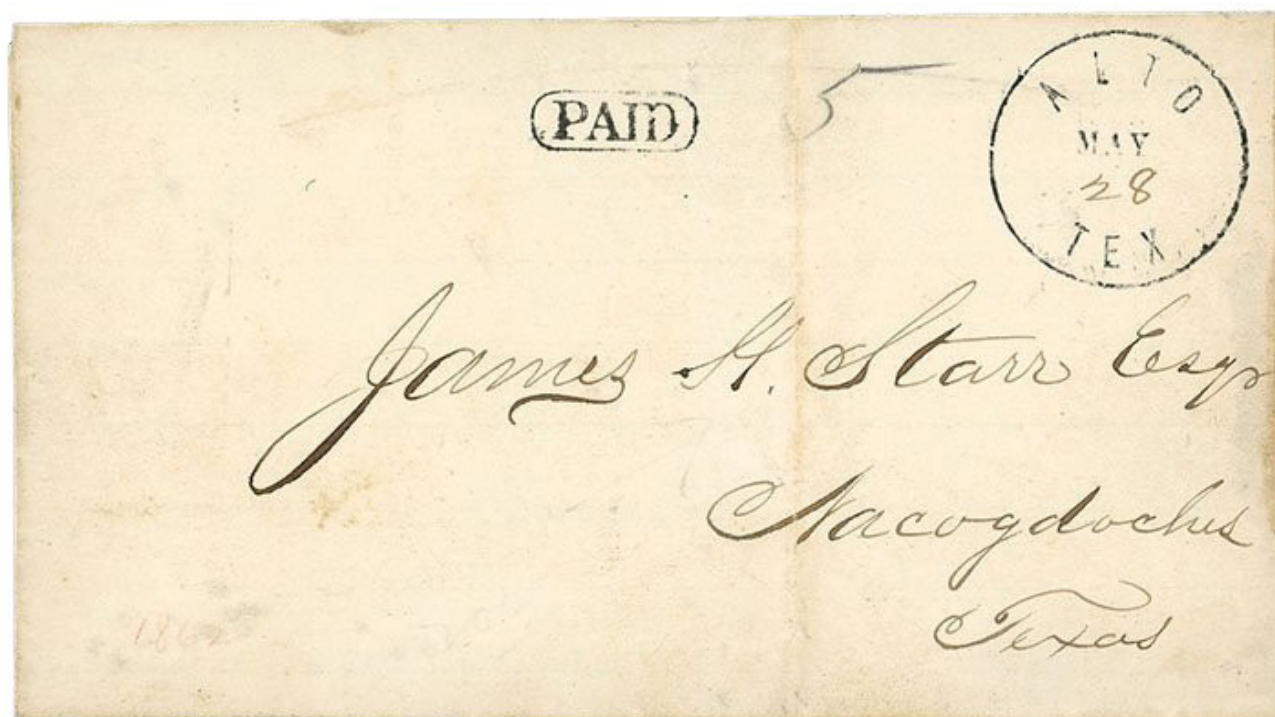 PAID
5
ALTO
MAY
28
TEX.
James H. Starr Esqr
Nacogdoches
Texas
1862